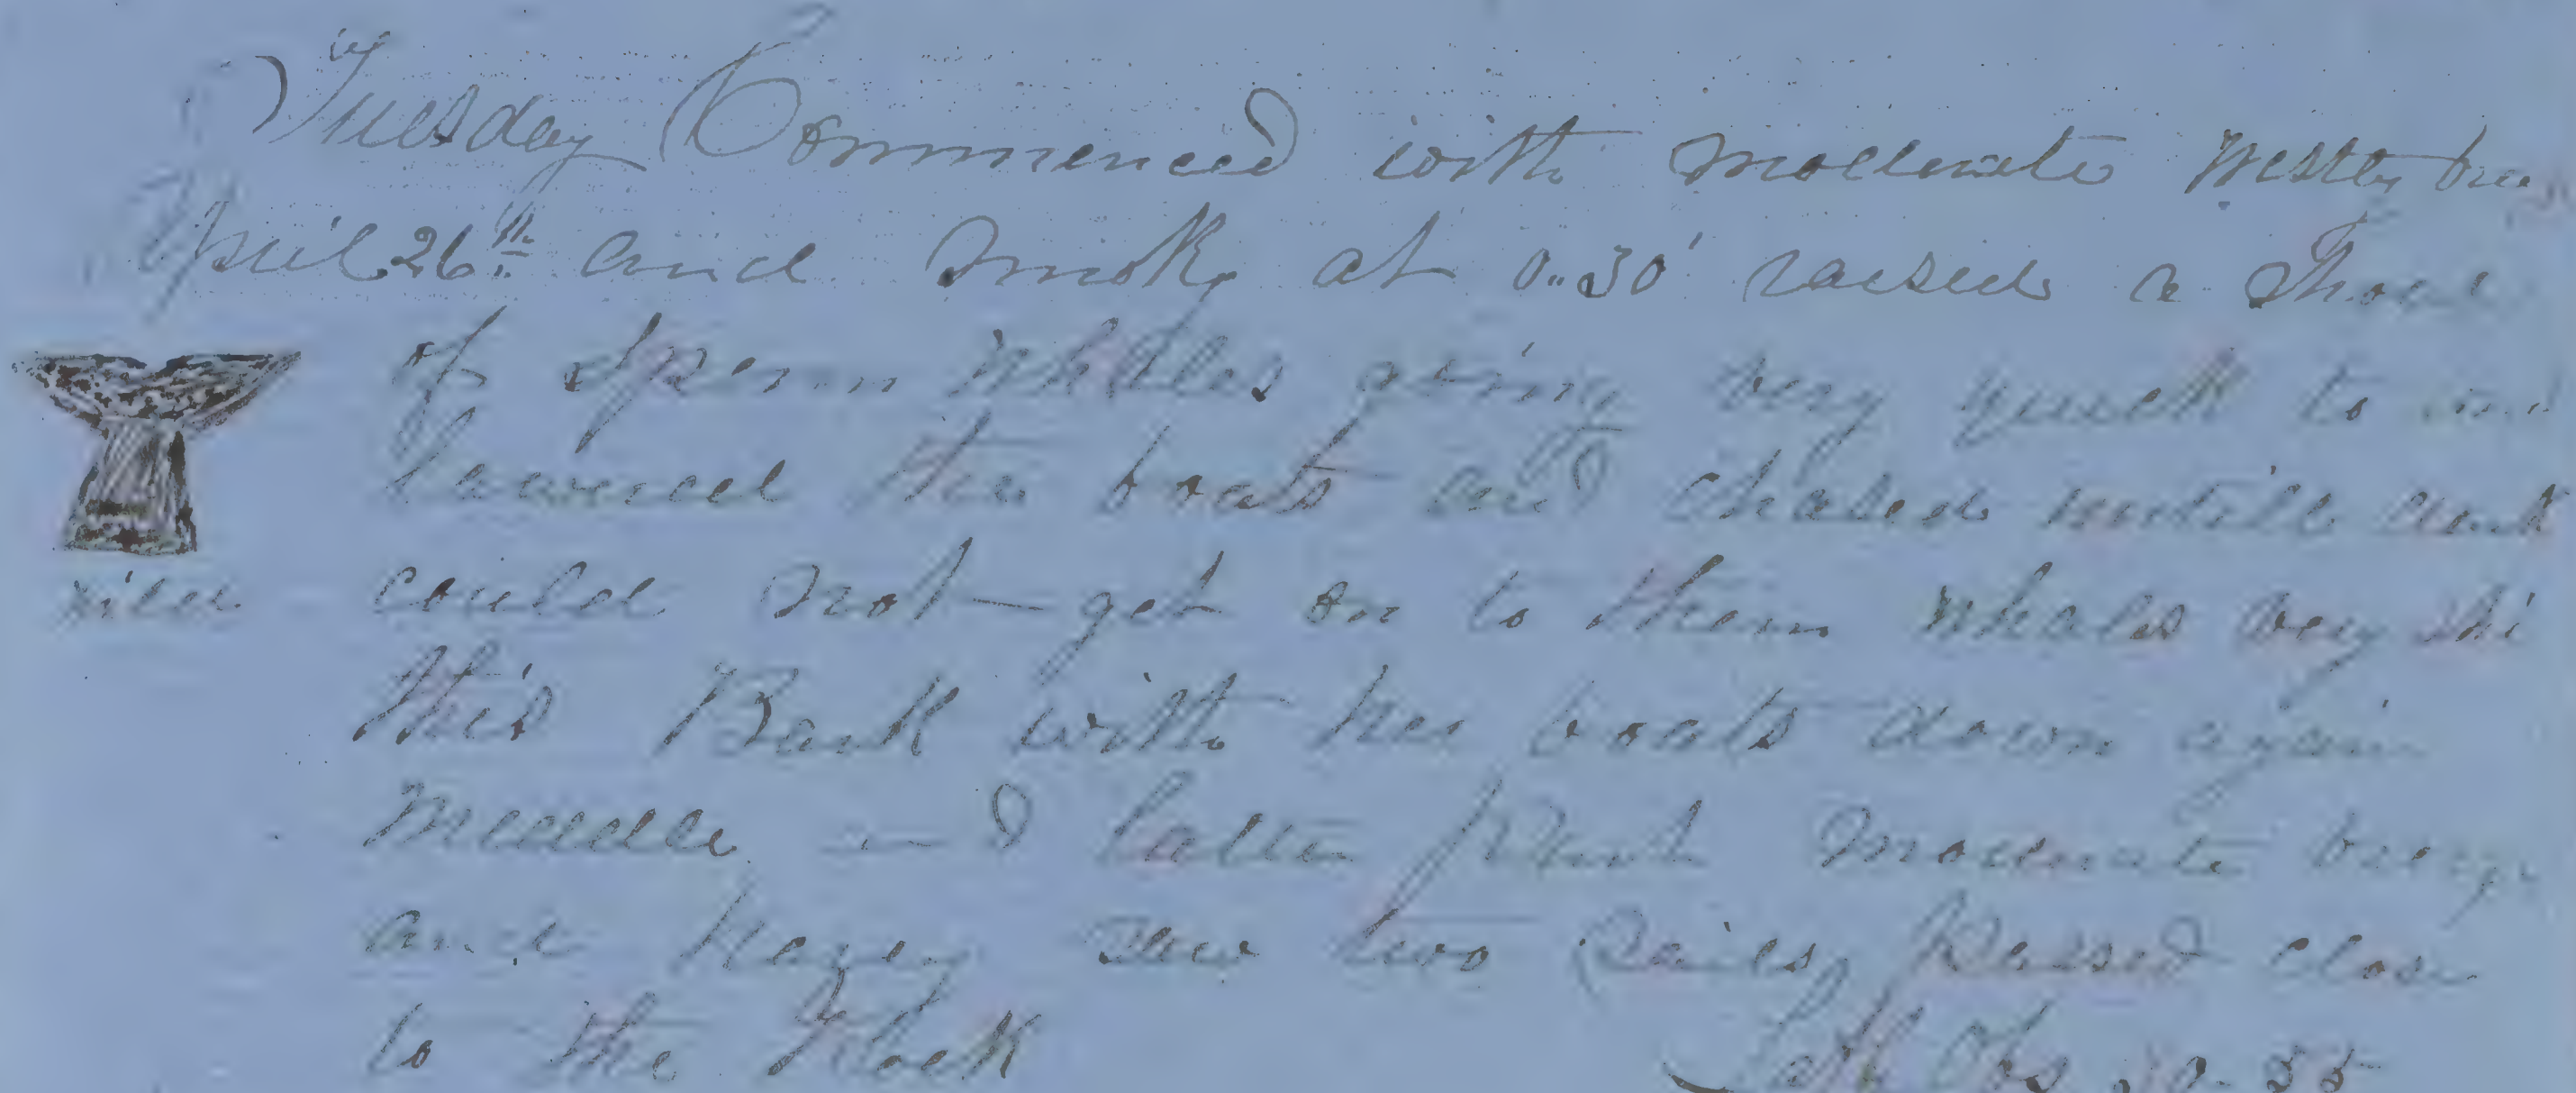 Tuesday Commenced with moderate Westerly
April 26th and Smoky at 0..30' raised a Shoal
of Sperm Whales going very quick to
lowered the boats and chased untill
could not get on to them whales very
this Bark with her boats down again
Middle and latter part moderate
and hazey saw two Sails, passed close
to the Rock
Lat Obs 30-55